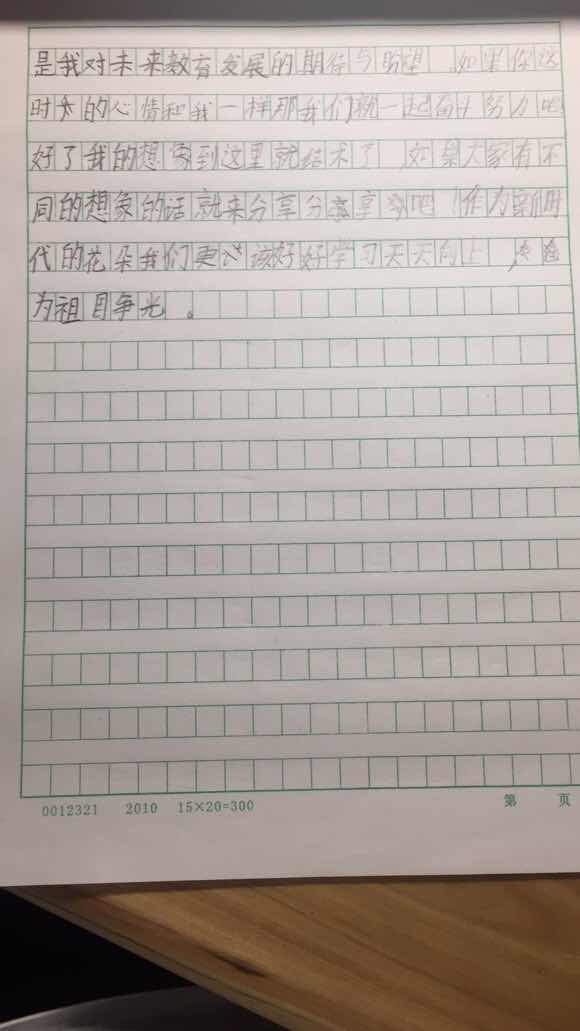 是我对未来教育发展的期待与盼望,如果你这
时的心情和我一样那我们就一起奋斗努力吧
好了我的想象到这里就结束了,如果大家有不
同的想象的话就来分享分享吧!作为新时
代的花朵我们更应该好好学习天天向上,
为祖国争光。
0012321 2010 15×20=300
第 页